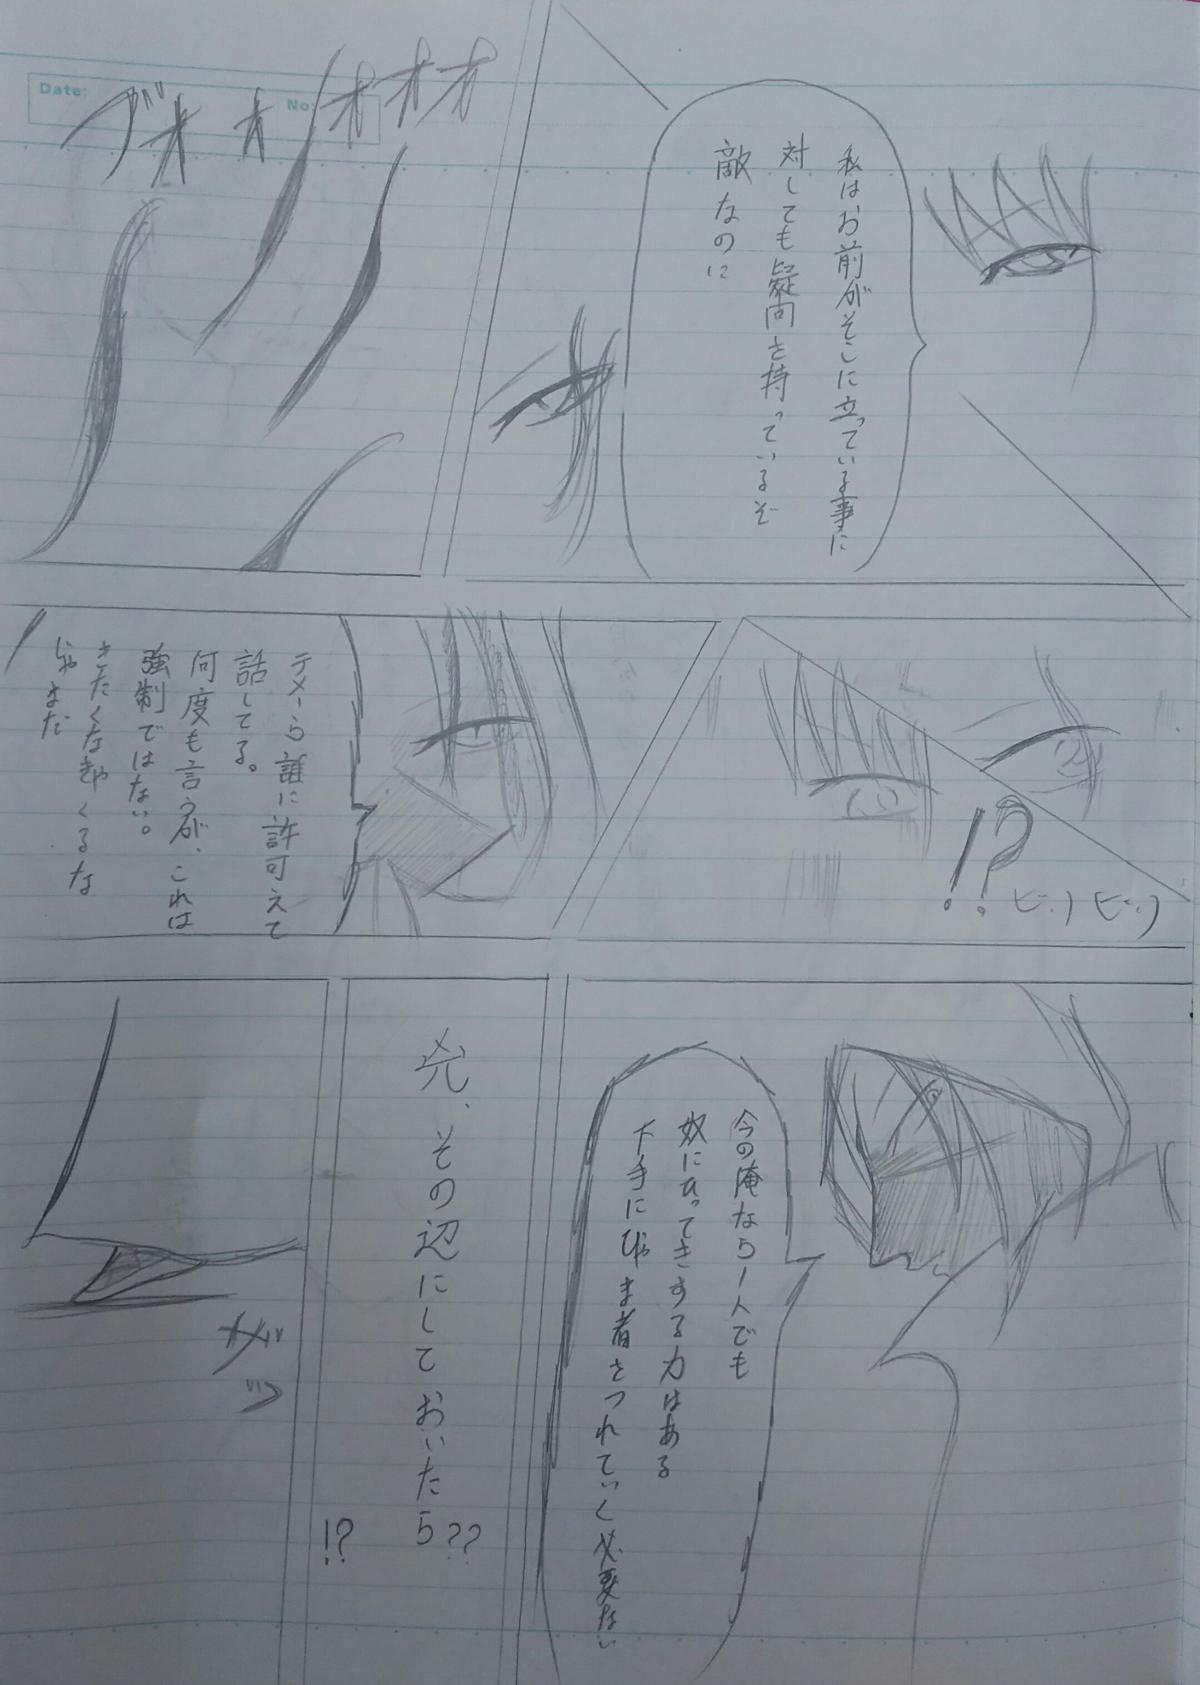 私はお前がそこに立っている事に
対しても疑問を持っているぞ
敵なのに
ブオォオオオ
Date:
No:
!?
ビリビリ
テメーら誰に許可えて
話してる。
何度も言うが、これは
強制ではない。
きたくなきゃくるな
じゃまだ
今の俺なら1人でも
奴にひってきする力はある
下手にじゃま者をつれていく必要ない
兇、その辺にしておいたら??
!?
ガッ